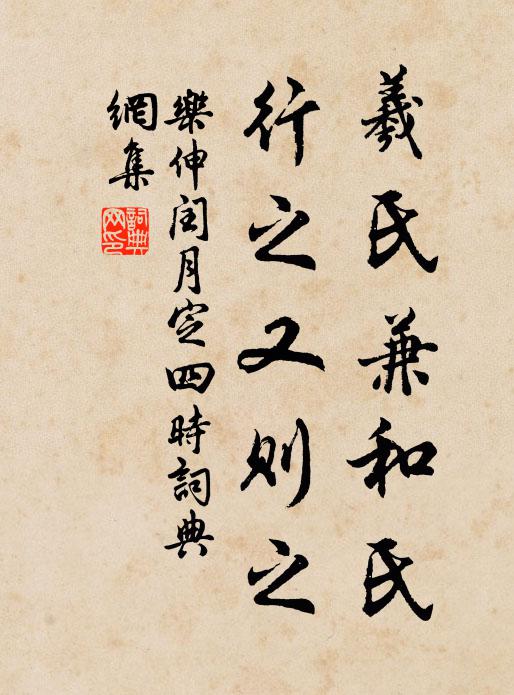 羲氏兼和氏
行之又則之
樂伸閏月定四時詞典
網集
詞典
网印